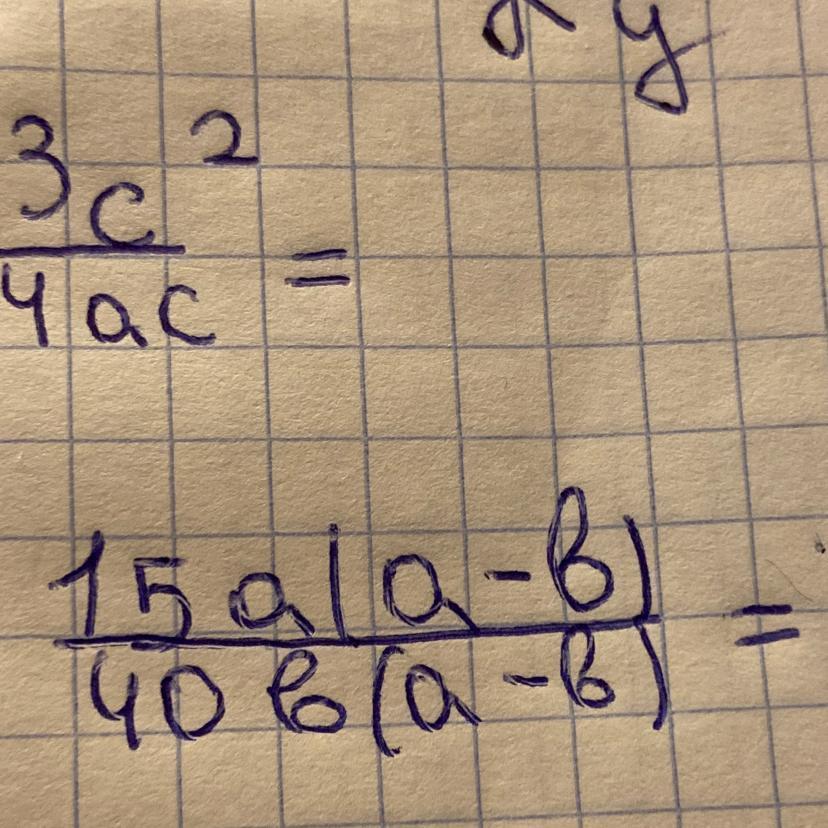 y
3c²
4ac =
15a(a-b)
40b(a-b) =